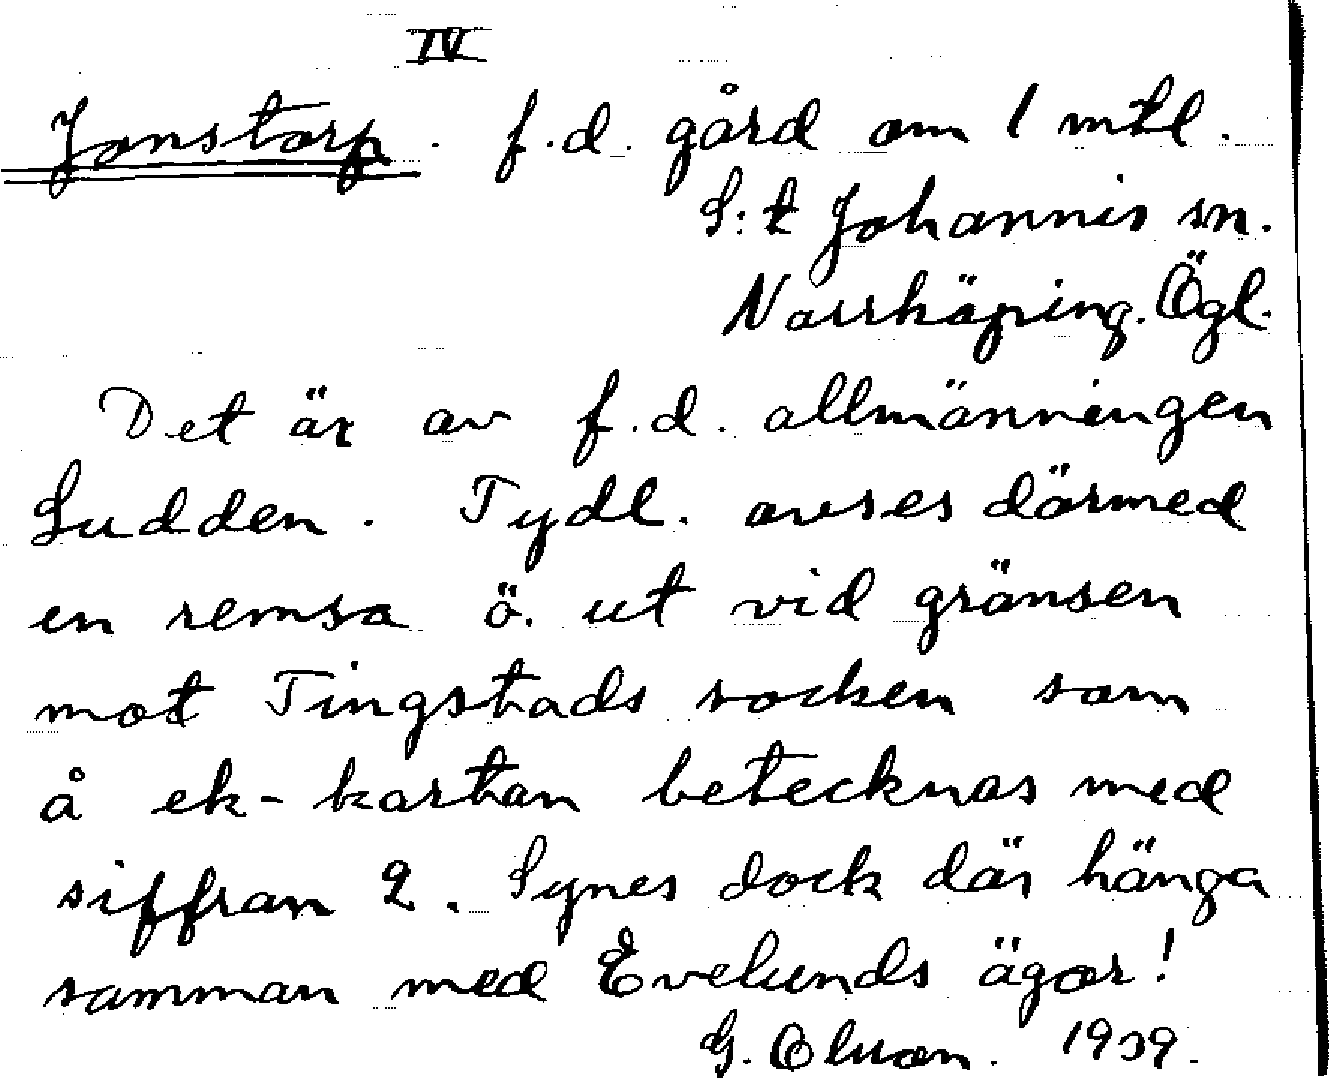 IV
Jonstorp. f.d. gård om 1 mtl.
S:t Johannis sn.
Norrköping. Ögl.
Det är av f.d. allmänningen
Sudden. Tydl. avses därmed
en remsa ö. ut vid gränsen
mot Tingstads socken som
å ek-kartan betecknas med
siffran 2. Synes dock där hänga
samman med Evelunds ägor!
G. 1939.